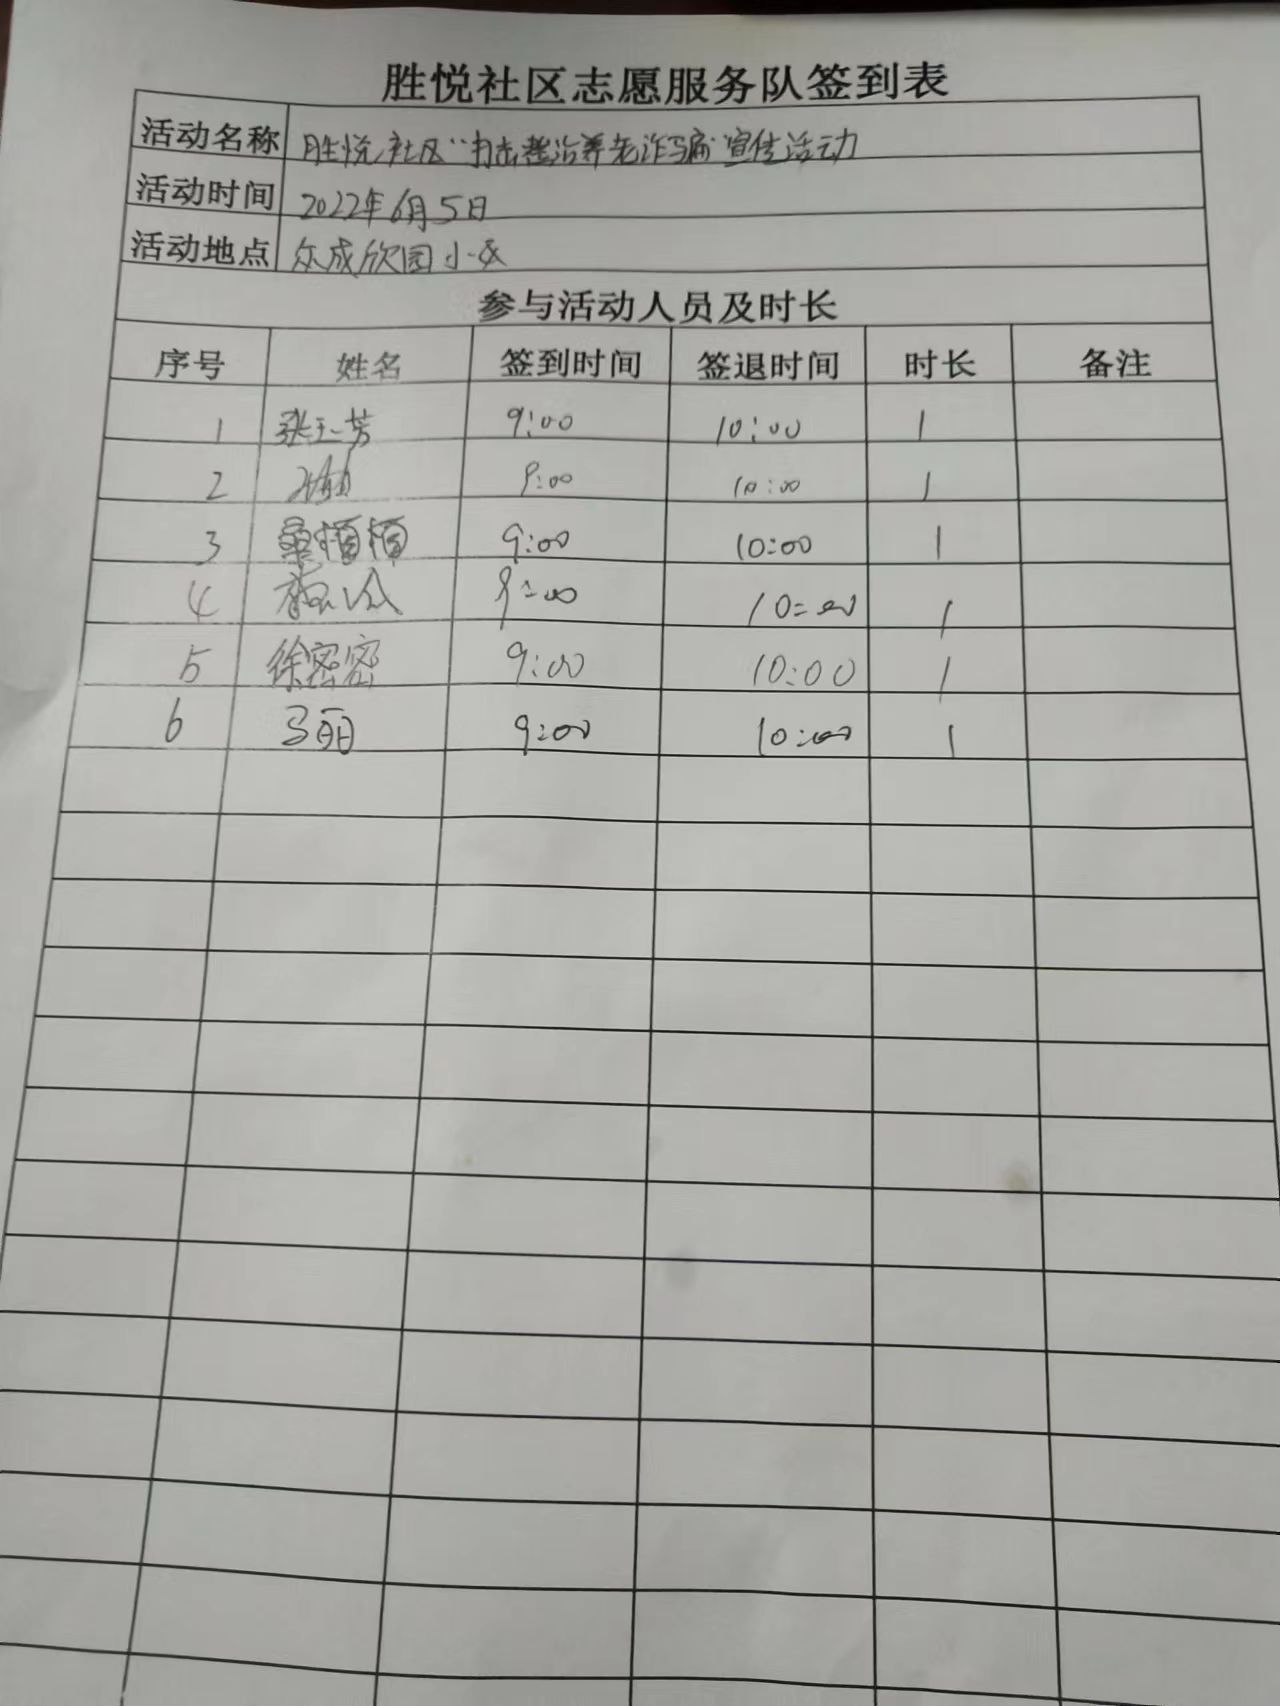 胜悦社区志愿服务队签到表
活动名称 胜悦社区"打击整治养老诈骗"宣传活动
活动时间 2022年6月5日
活动地点 众成欣园小区
参与活动人员及时长
序号 姓名 签到时间 签退时间 时长 备注
1 张玉芳 9:00 10:00 1
2 9:00 10:00 1
3 桑楠楠 9:00 10:00 1
4 9:00 10:00 1
5 徐密密 9:00 10:00 1
6 马丽 9:00 10:00 1